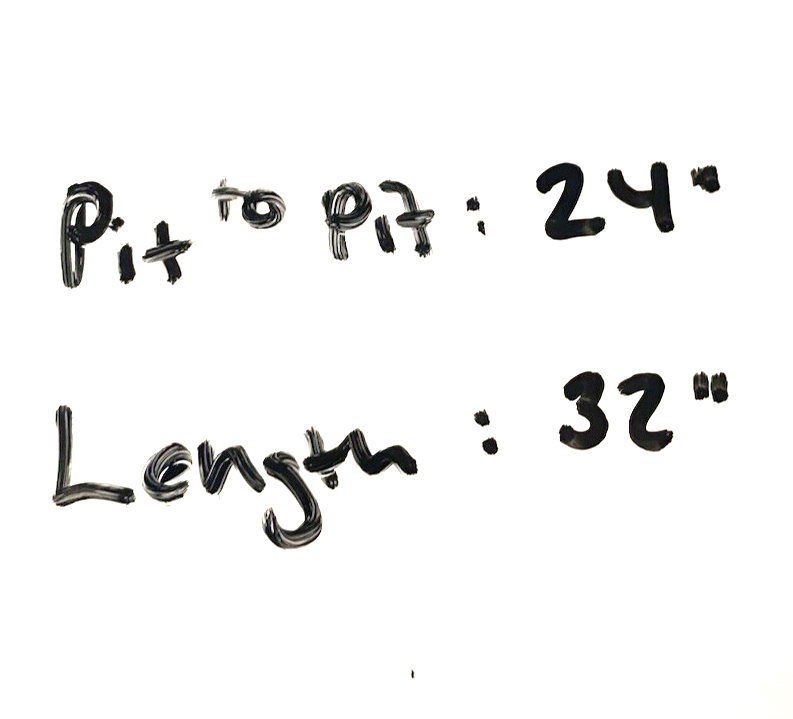 Pit to Pit : 24"
Length : 32"